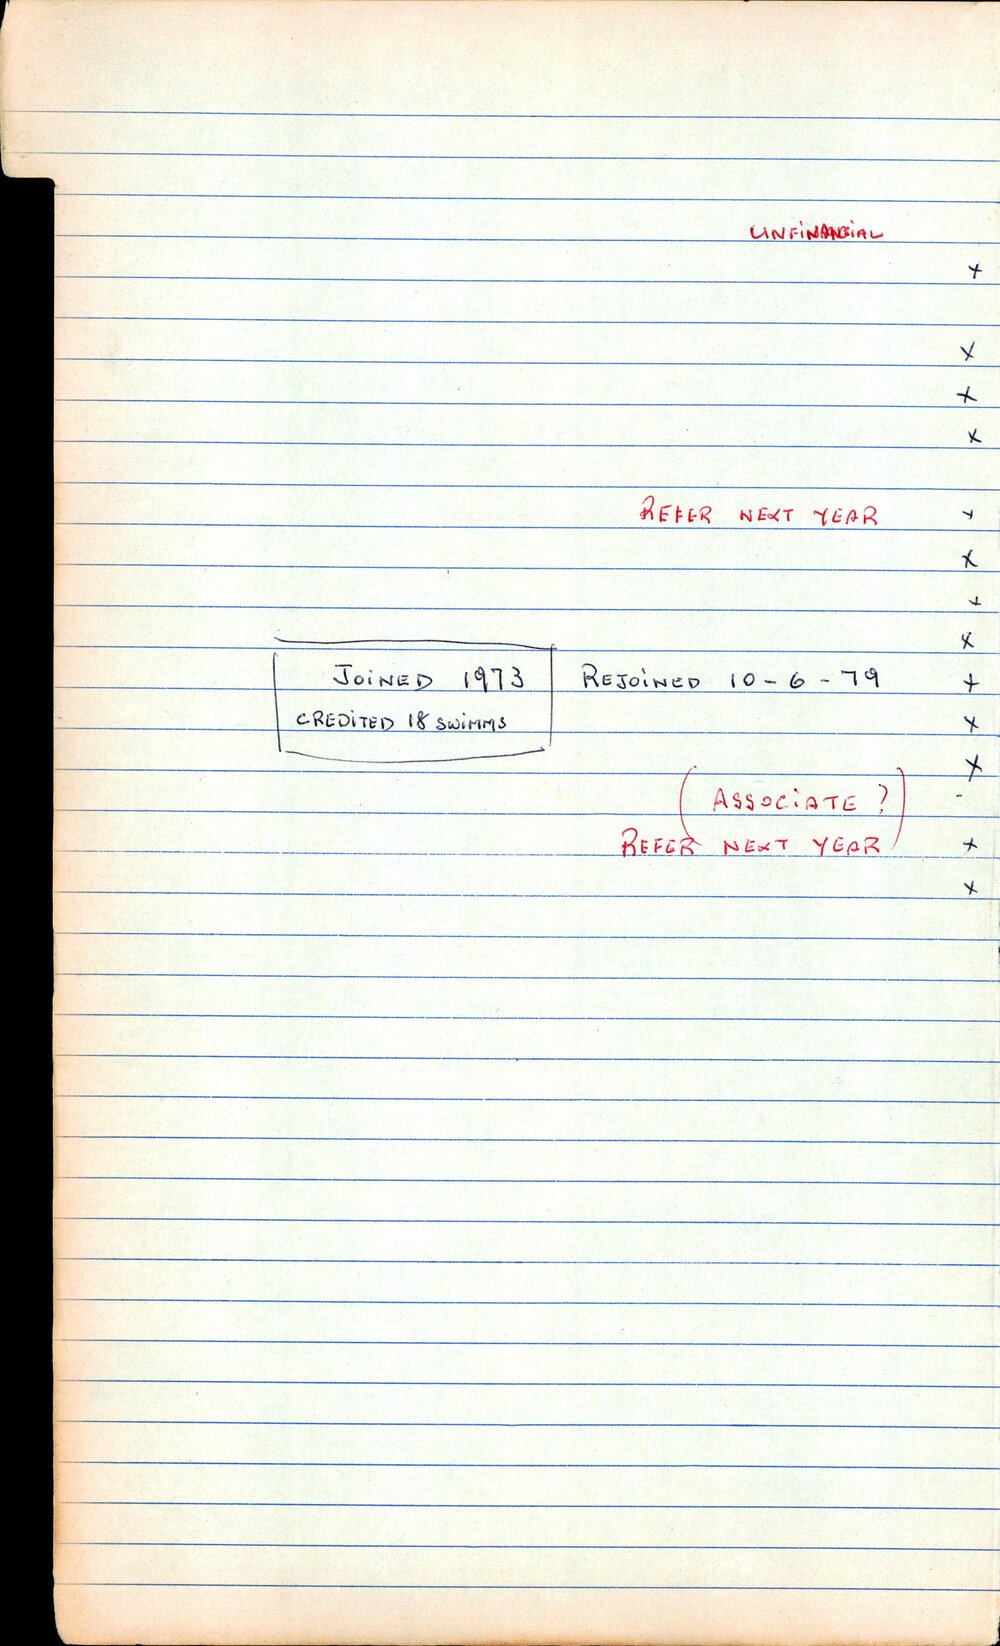 UNFINANCIAL
x
x
x
x
REFER NEXT YEAR x
x
x
x
JOINED 1973 REJOINED 10-6-79 x
CREDITED 18 SWIMMS x
x
(ASSOCIATE ?) -
REFER NEXT YEAR x
x